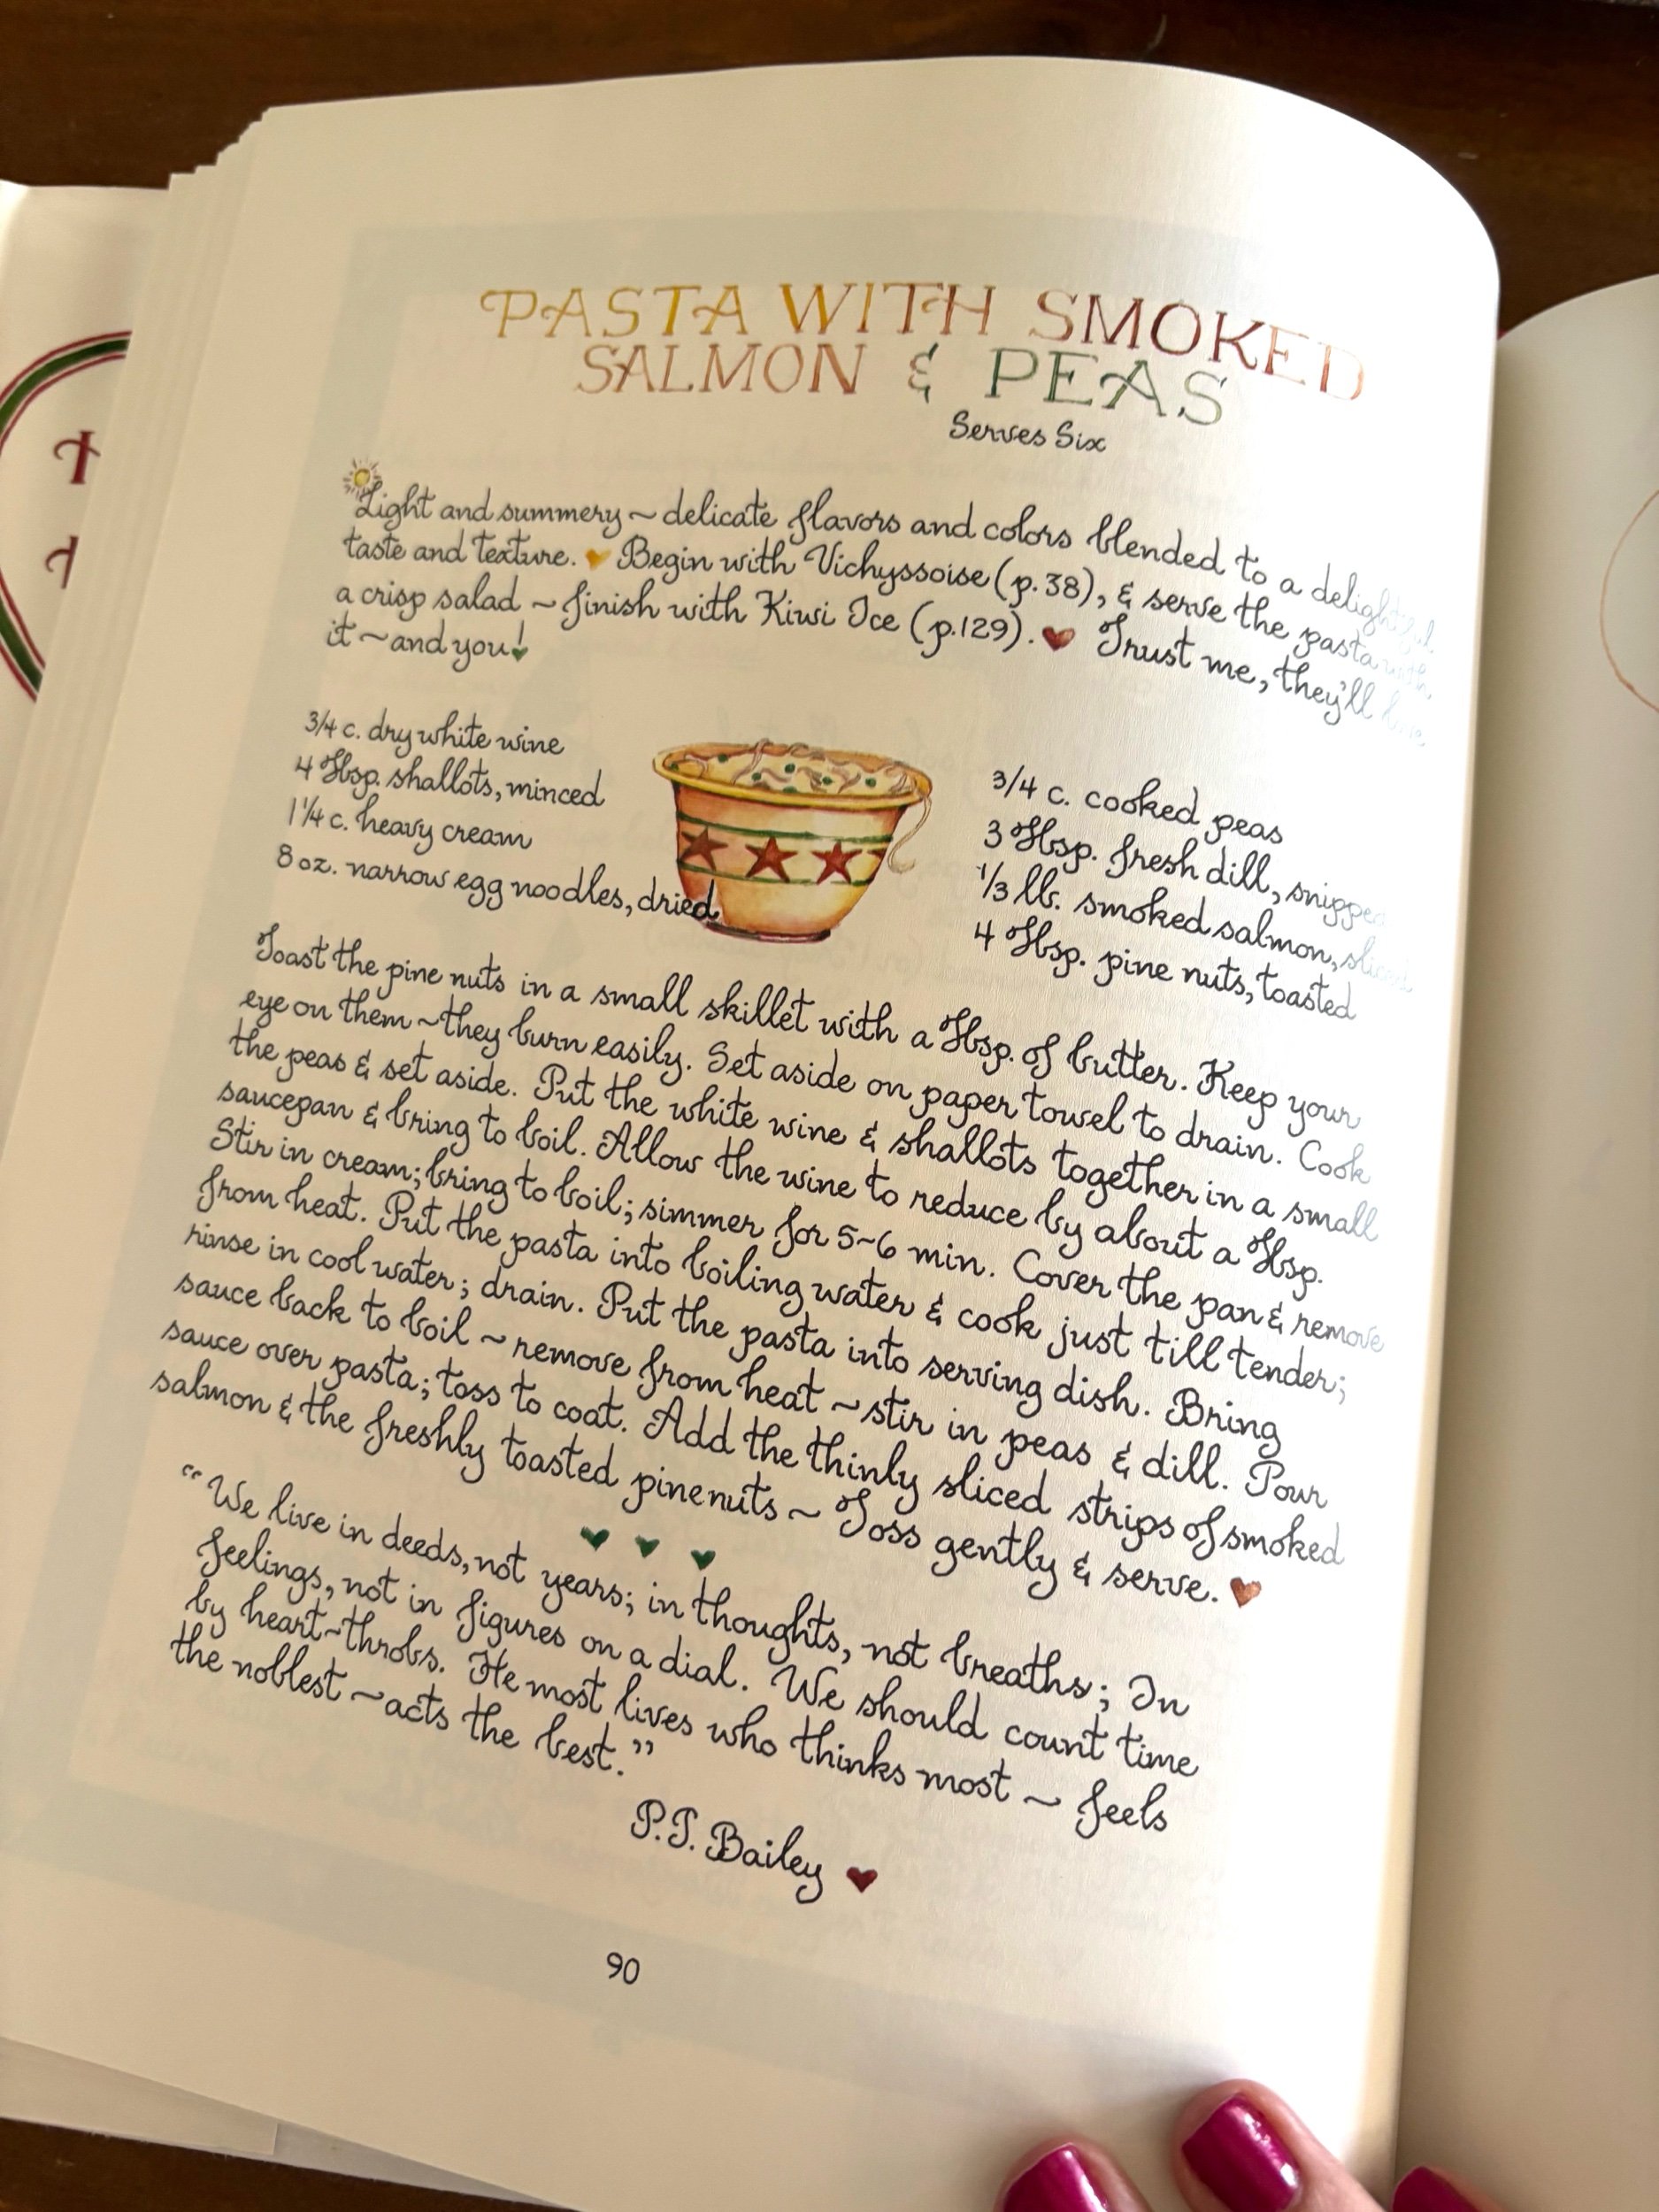 PASTA WITH SMOKED
SALMON & PEAS
Serves Six
Light and summery ~ delicate flavors and colors blended to a delightful
taste and texture. Begin with Vichyssoise (p.38), & serve the pasta with
a crisp salad ~ finish with Kiwi Ice (p.129). Trust me, they'll love
it ~ and you!
3/4 c. dry white wine
4 Tbsp. shallots, minced
1 1/4 c. heavy cream
8 oz. narrow egg noodles, dried
3/4 c. cooked peas
3 Tbsp. fresh dill, snipped
1/3 lb. smoked salmon, sliced
4 Tbsp. pine nuts, toasted
Toast the pine nuts in a small skillet with a Tbsp. of butter. Keep your
eye on them ~ they burn easily. Set aside on paper towel to drain. Cook
the peas & set aside. Put the white wine & shallots together in a small
saucepan & bring to boil. Allow the wine to reduce by about a Tbsp.
Stir in cream; bring to boil; simmer for 5~6 min. Cover the pan & remove
from heat. Put the pasta into boiling water & cook just till tender;
rinse in cool water; drain. Put the pasta into serving dish. Bring
sauce back to boil ~ remove from heat ~ stir in peas & dill. Pour
sauce over pasta; toss to coat. Add the thinly sliced strips of smoked
salmon & the freshly toasted pine nuts ~ Toss gently & serve.
"We live in deeds, not years; in thoughts, not breaths; In
feelings, not in figures on a dial. We should count time
by heart~throbs. He most lives who thinks most ~ feels
the noblest ~ acts the best."
P.J. Bailey
90